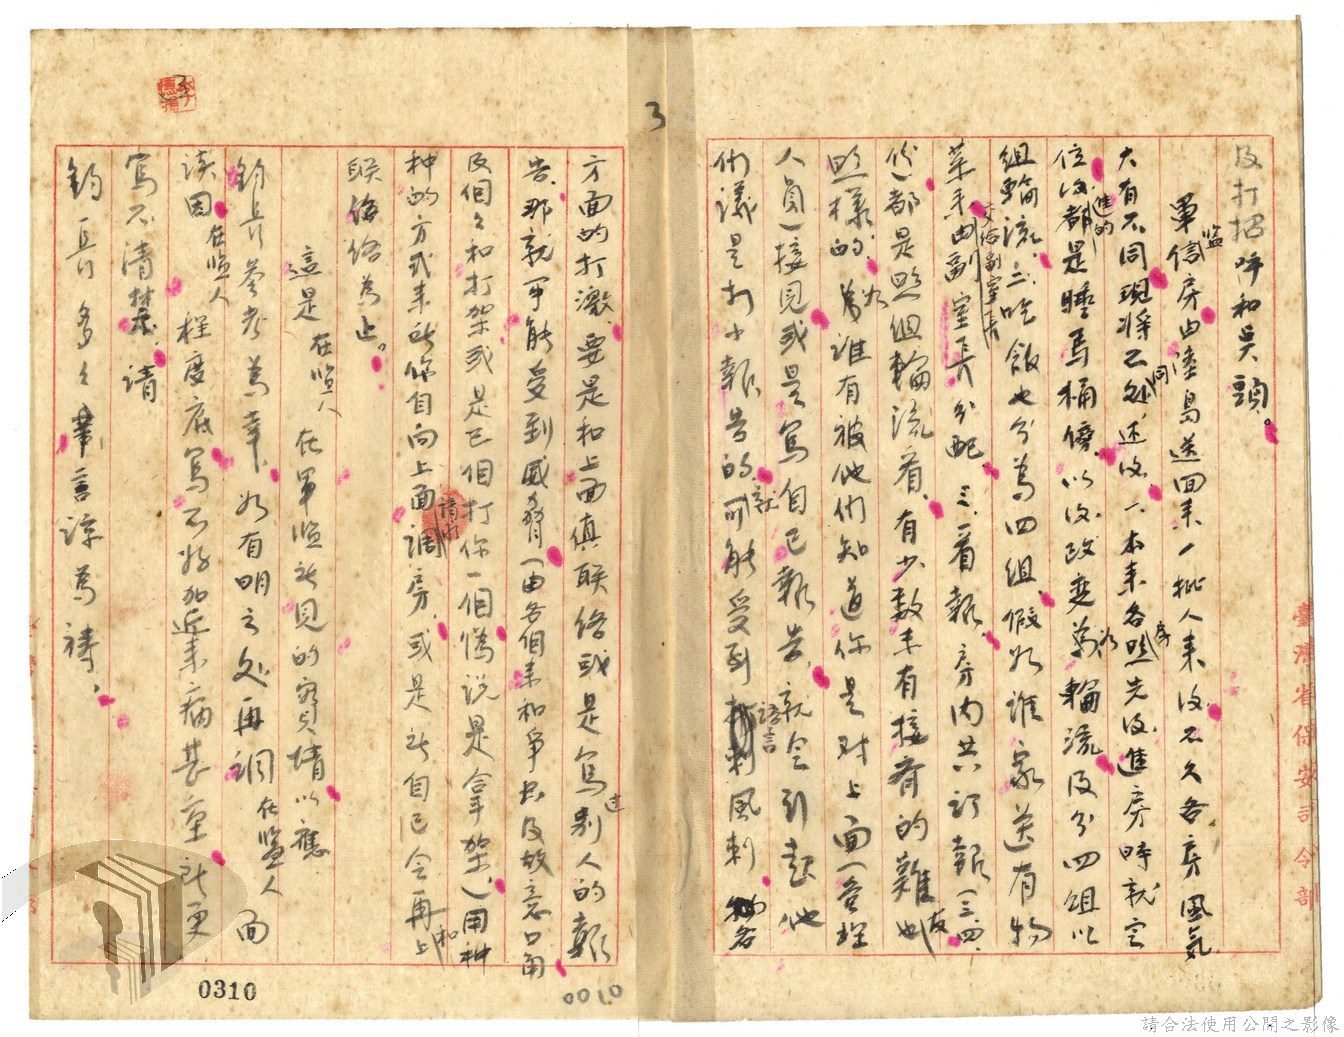 3
及打招呼和点頭。
軍監信房由綠島送回来ノ批人来後不久各房風氣
大有不同現将不同处述後。一本来各照先後進房時就定
位後進的都是睡馬桶傍以後改变為輪流及分四組以
組輪流。二、吃飯也分為四組、假如誰家送有物
菜来由副室長分配 交給副室長 三、看報房内共訂報(三、四、
份)都是照組輪流看、有少数未有接看的難友也
照樣的。如誰有被他们知道你是对上面(管理
人員)接見或是寫自已報告、就会引起他
们議是打小報告的就可能受到 語言 風刺
方面的打激、要是和上面真联络或是寫过别人的報
告、那就可能受到威脅(由各個来和爭吵及故意口角
及個人和打架或是已個打你一個偽說是拿架、)用种
种的方式来註你自向上面請求調房、或是註自已会再和上
联络给為止。
這是在監人在軍監所見的實情以應
鈞長參考為幸、如有明之处再調在監人面
談因在監人程度底寫不好加近来病甚重所更
寫不清楚、請
鈞長多多筆言諒為祷、
臺灣省保安司令部
0310
0010
請合法使用公開之影像